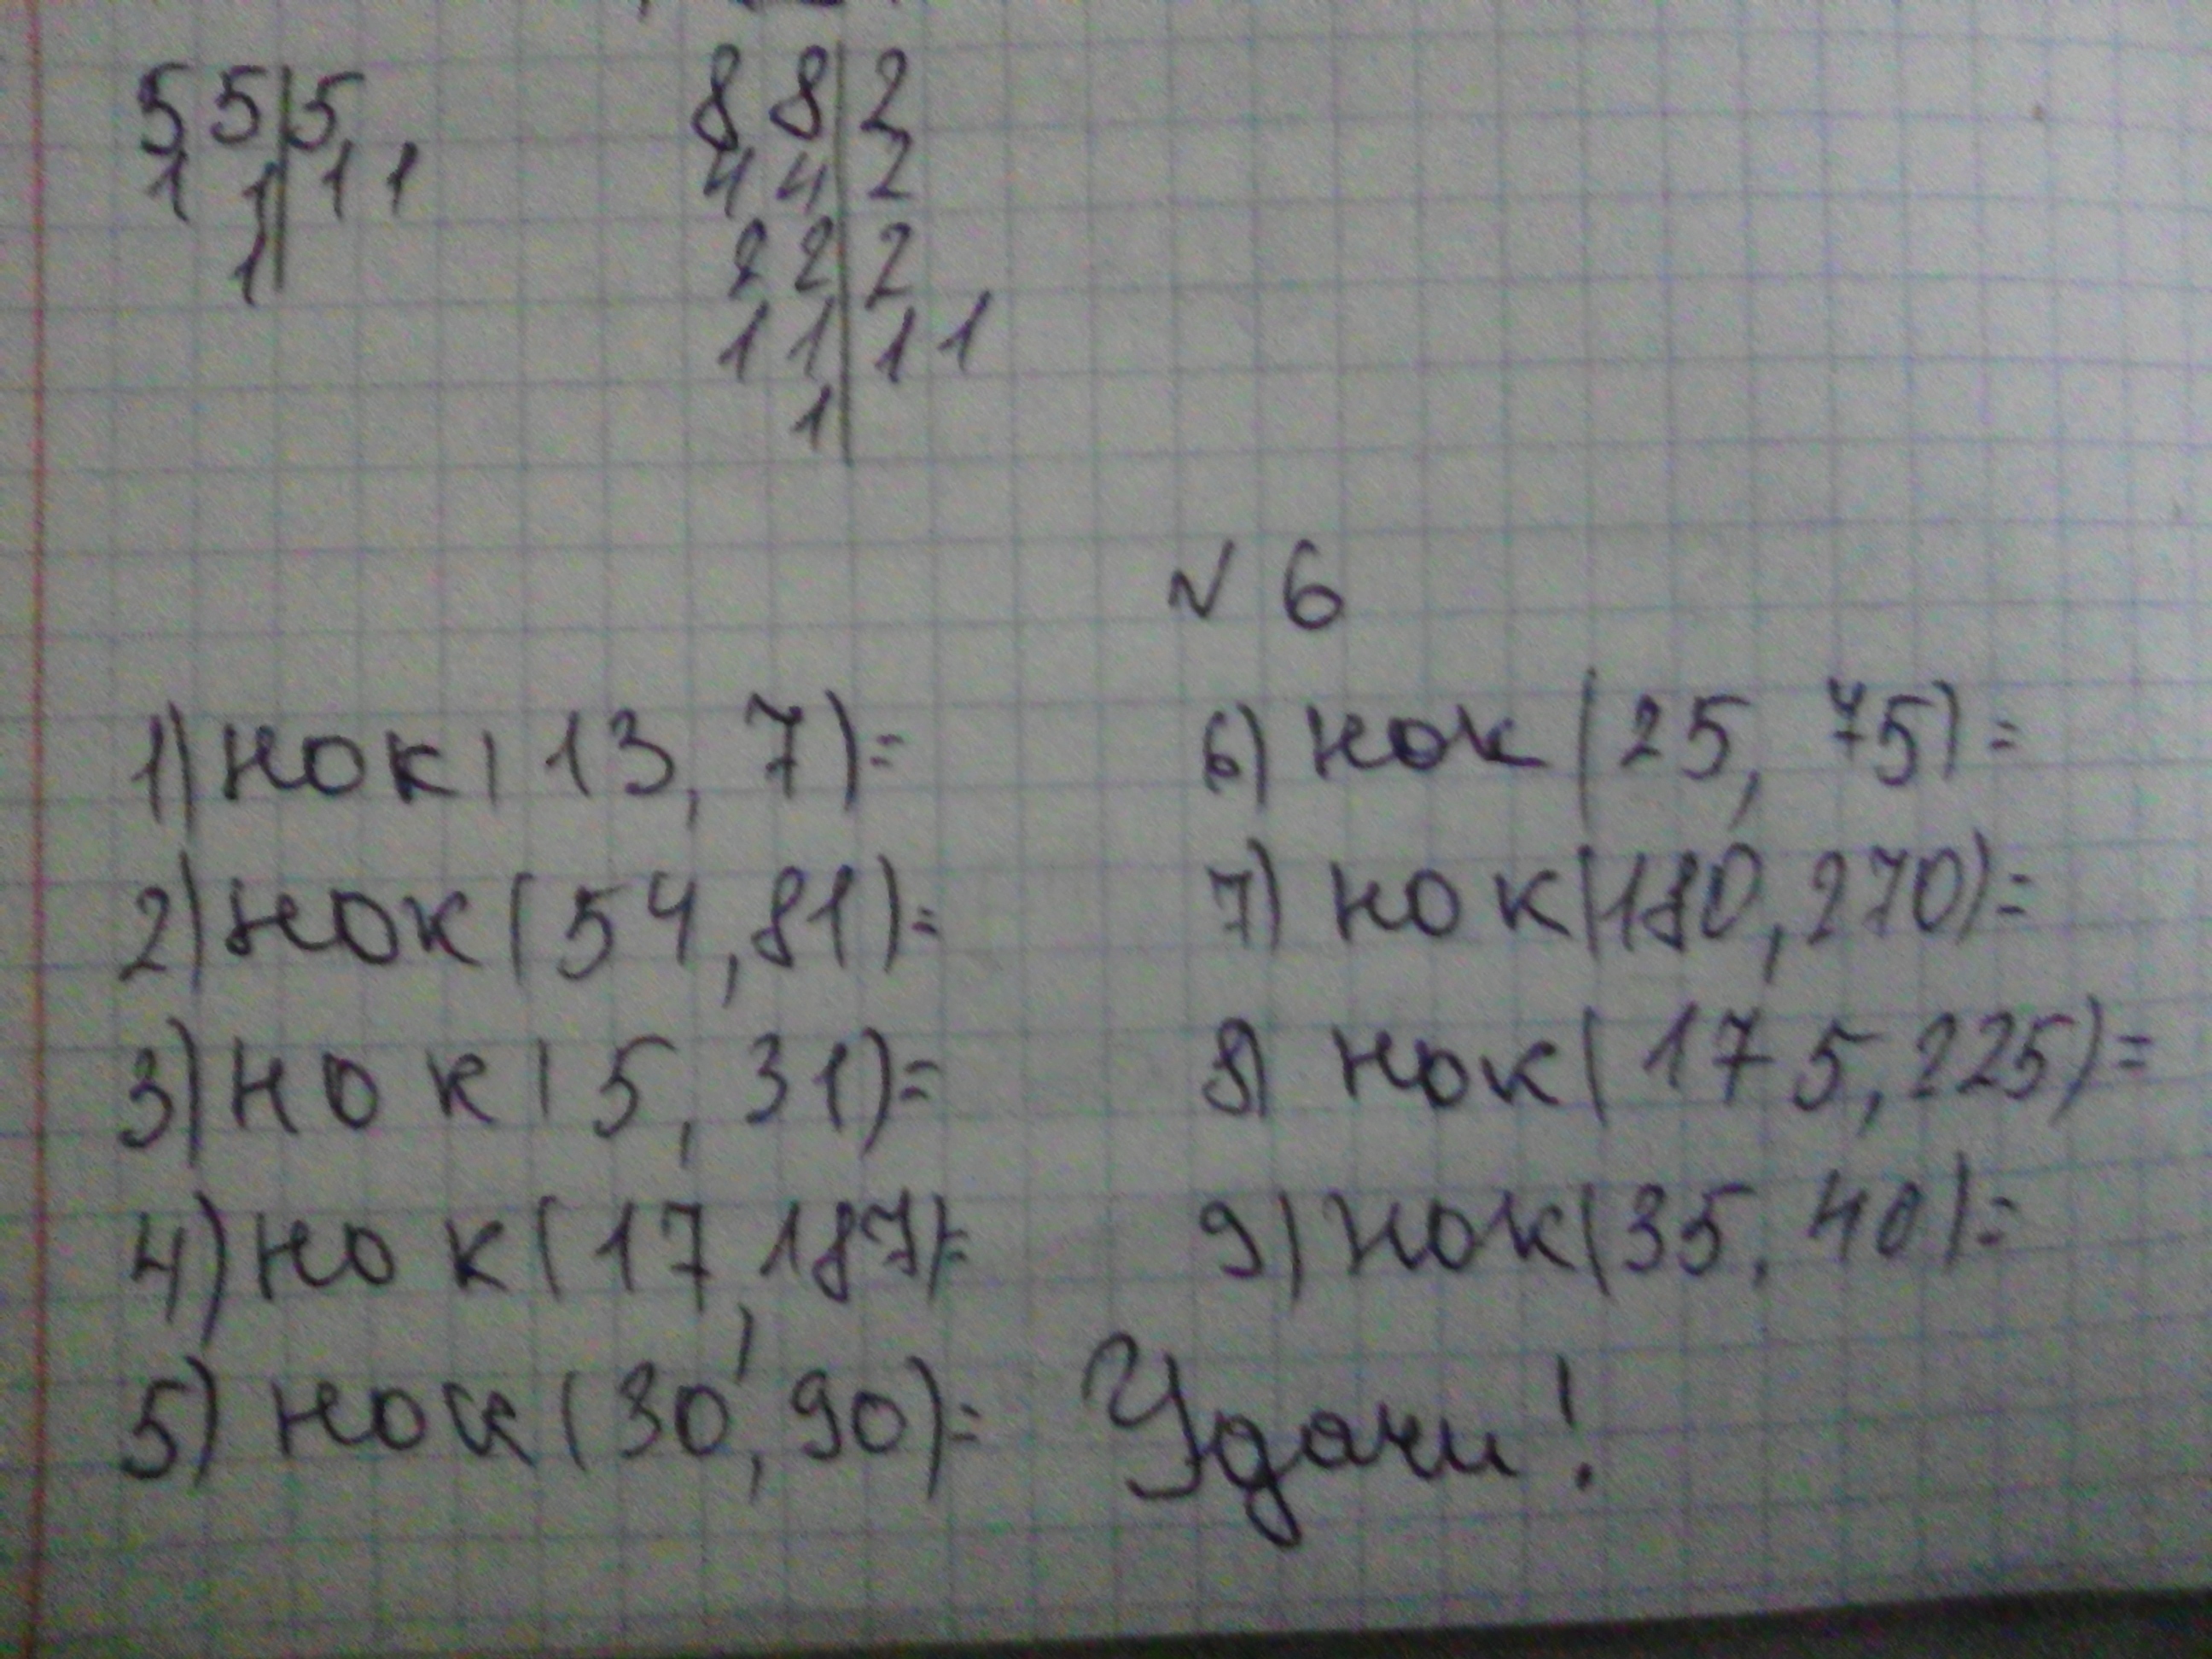 55|5
11|11
1|
88|2
44|2
22|2
11|11
1|
№ 6
1) НОК(13, 7)=
2) НОК(54, 81)=
3) НОК(5, 31)=
4) НОК(17, 187)=
5) НОК(30, 90)=
6) НОК(25, 75)=
7) НОК(180, 270)=
8) НОК(175, 225)=
9) НОК(35, 40)=
Удачи!